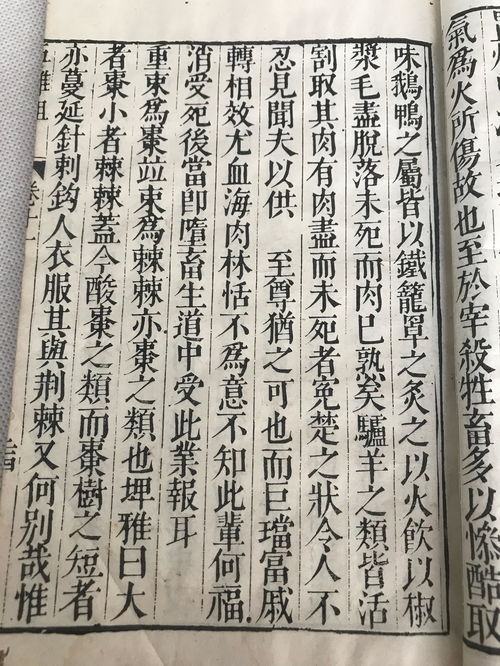 氣爲火所傷故也至於宰殺牲畜多以慘酷取
味鵝鴨之屬皆以鐵籠罩之炙之以火飲以椒
漿毛盡脫落未死而肉已熟矣驢羊之類皆活
割取其肉有肉盡而未死者寃楚之狀令人不
忍見聞夫以供 至尊猶之可也而巨璫富戚
轉相效尤血海肉林恬不爲意不知此輩何福
消受死後當即墮畜生道中受此業報耳
重朿爲棗竝朿爲棘棘亦棗之類也埤雅曰大
者棗小者棘棘蓋今酸棗之類而棗樹之短者
亦蔓延針刺鈎人衣服其與荆棘又何別哉惟
五雜俎 卷十一